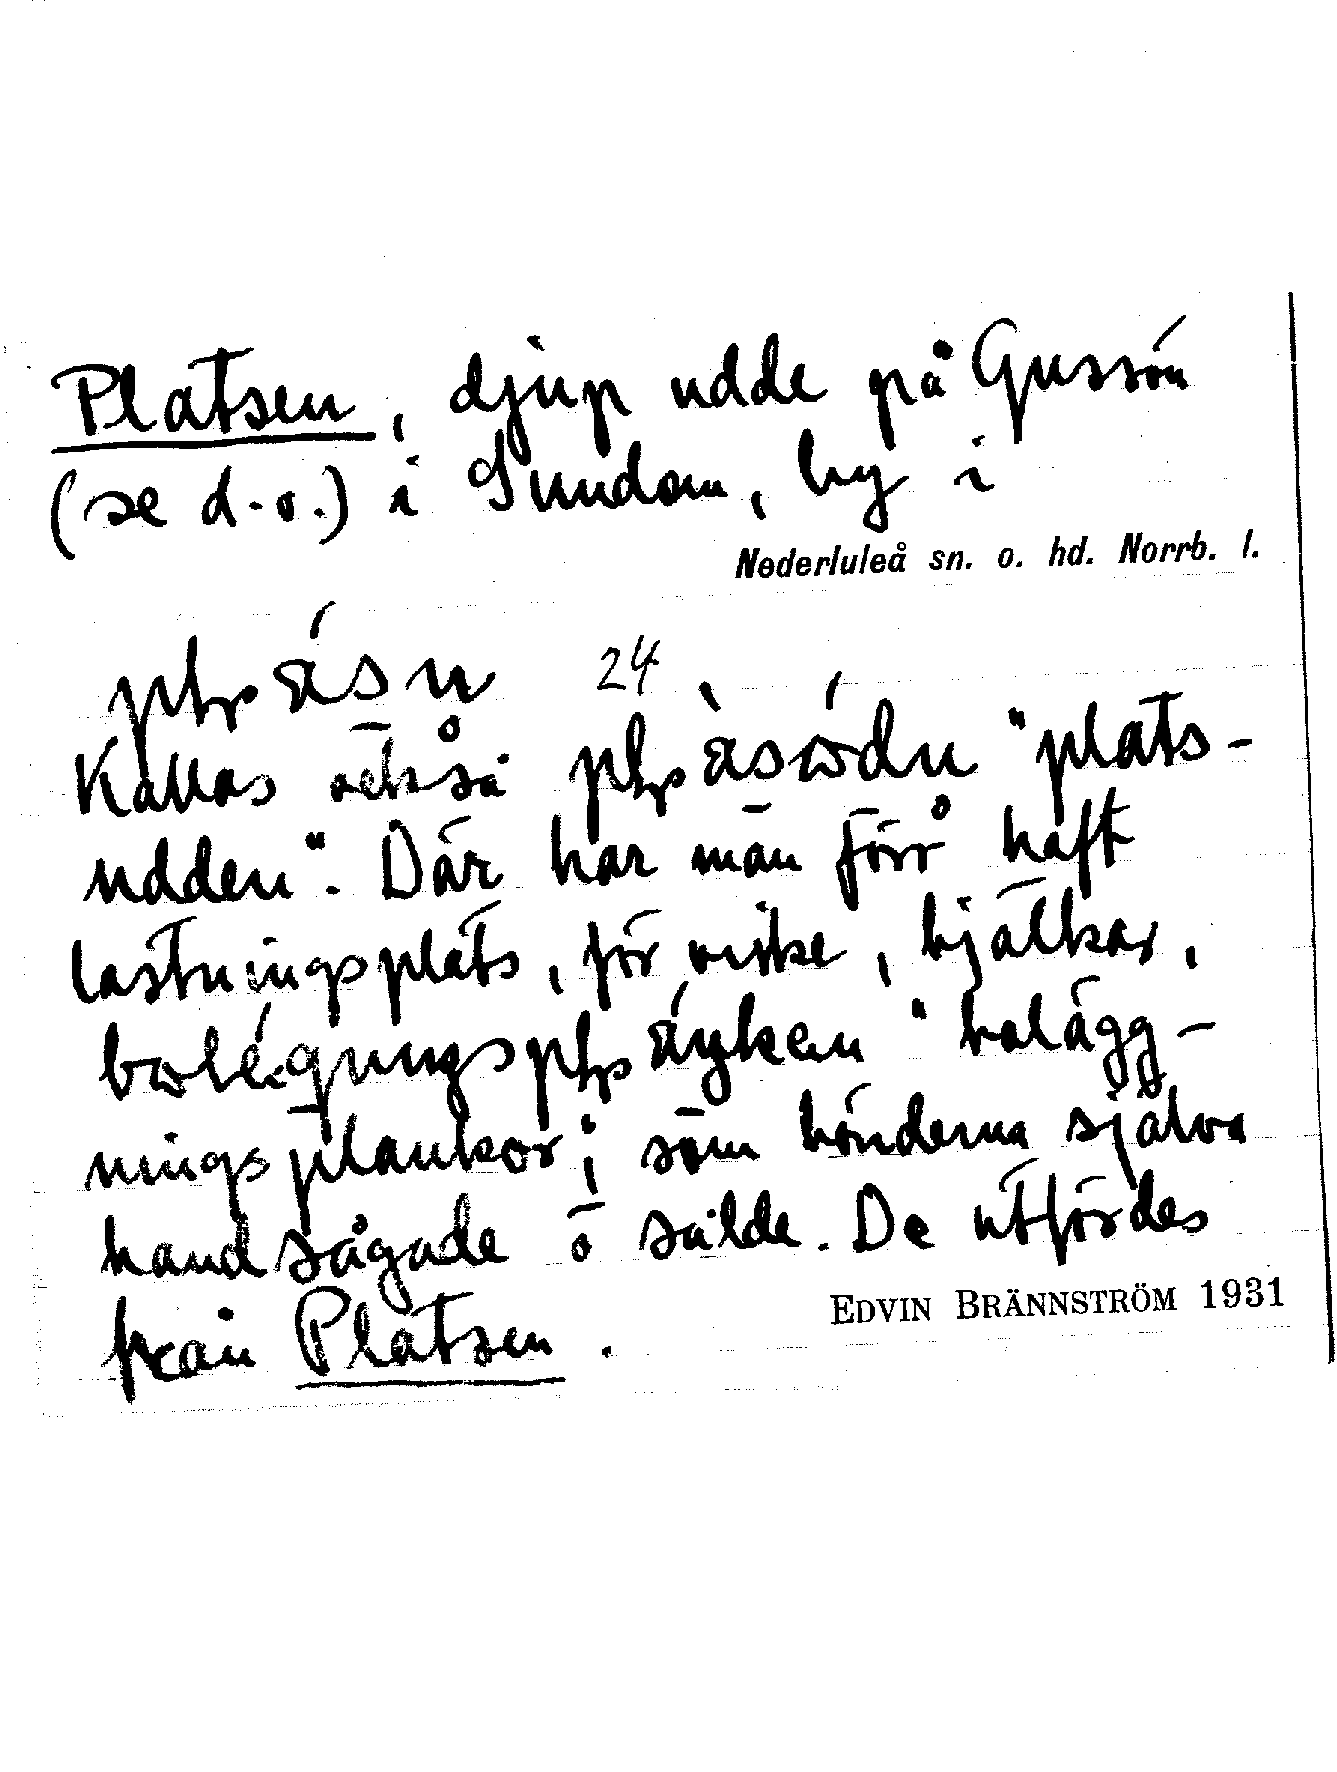 Platsen, djup udde på Gussön
(se d.o.) i Sundom, by i
Nederluleå sn. o. hd. Norrb. l.
24
Kallas också "plats-
udden". Där har man förr haft
lastningsplats, för virke, bjälkar,
"belägg-
ningsplankor; som bönderna själva
handsågade o sålde. De utfördes
från Platsen.
EDVIN BRÄNNSTRÖM 1931